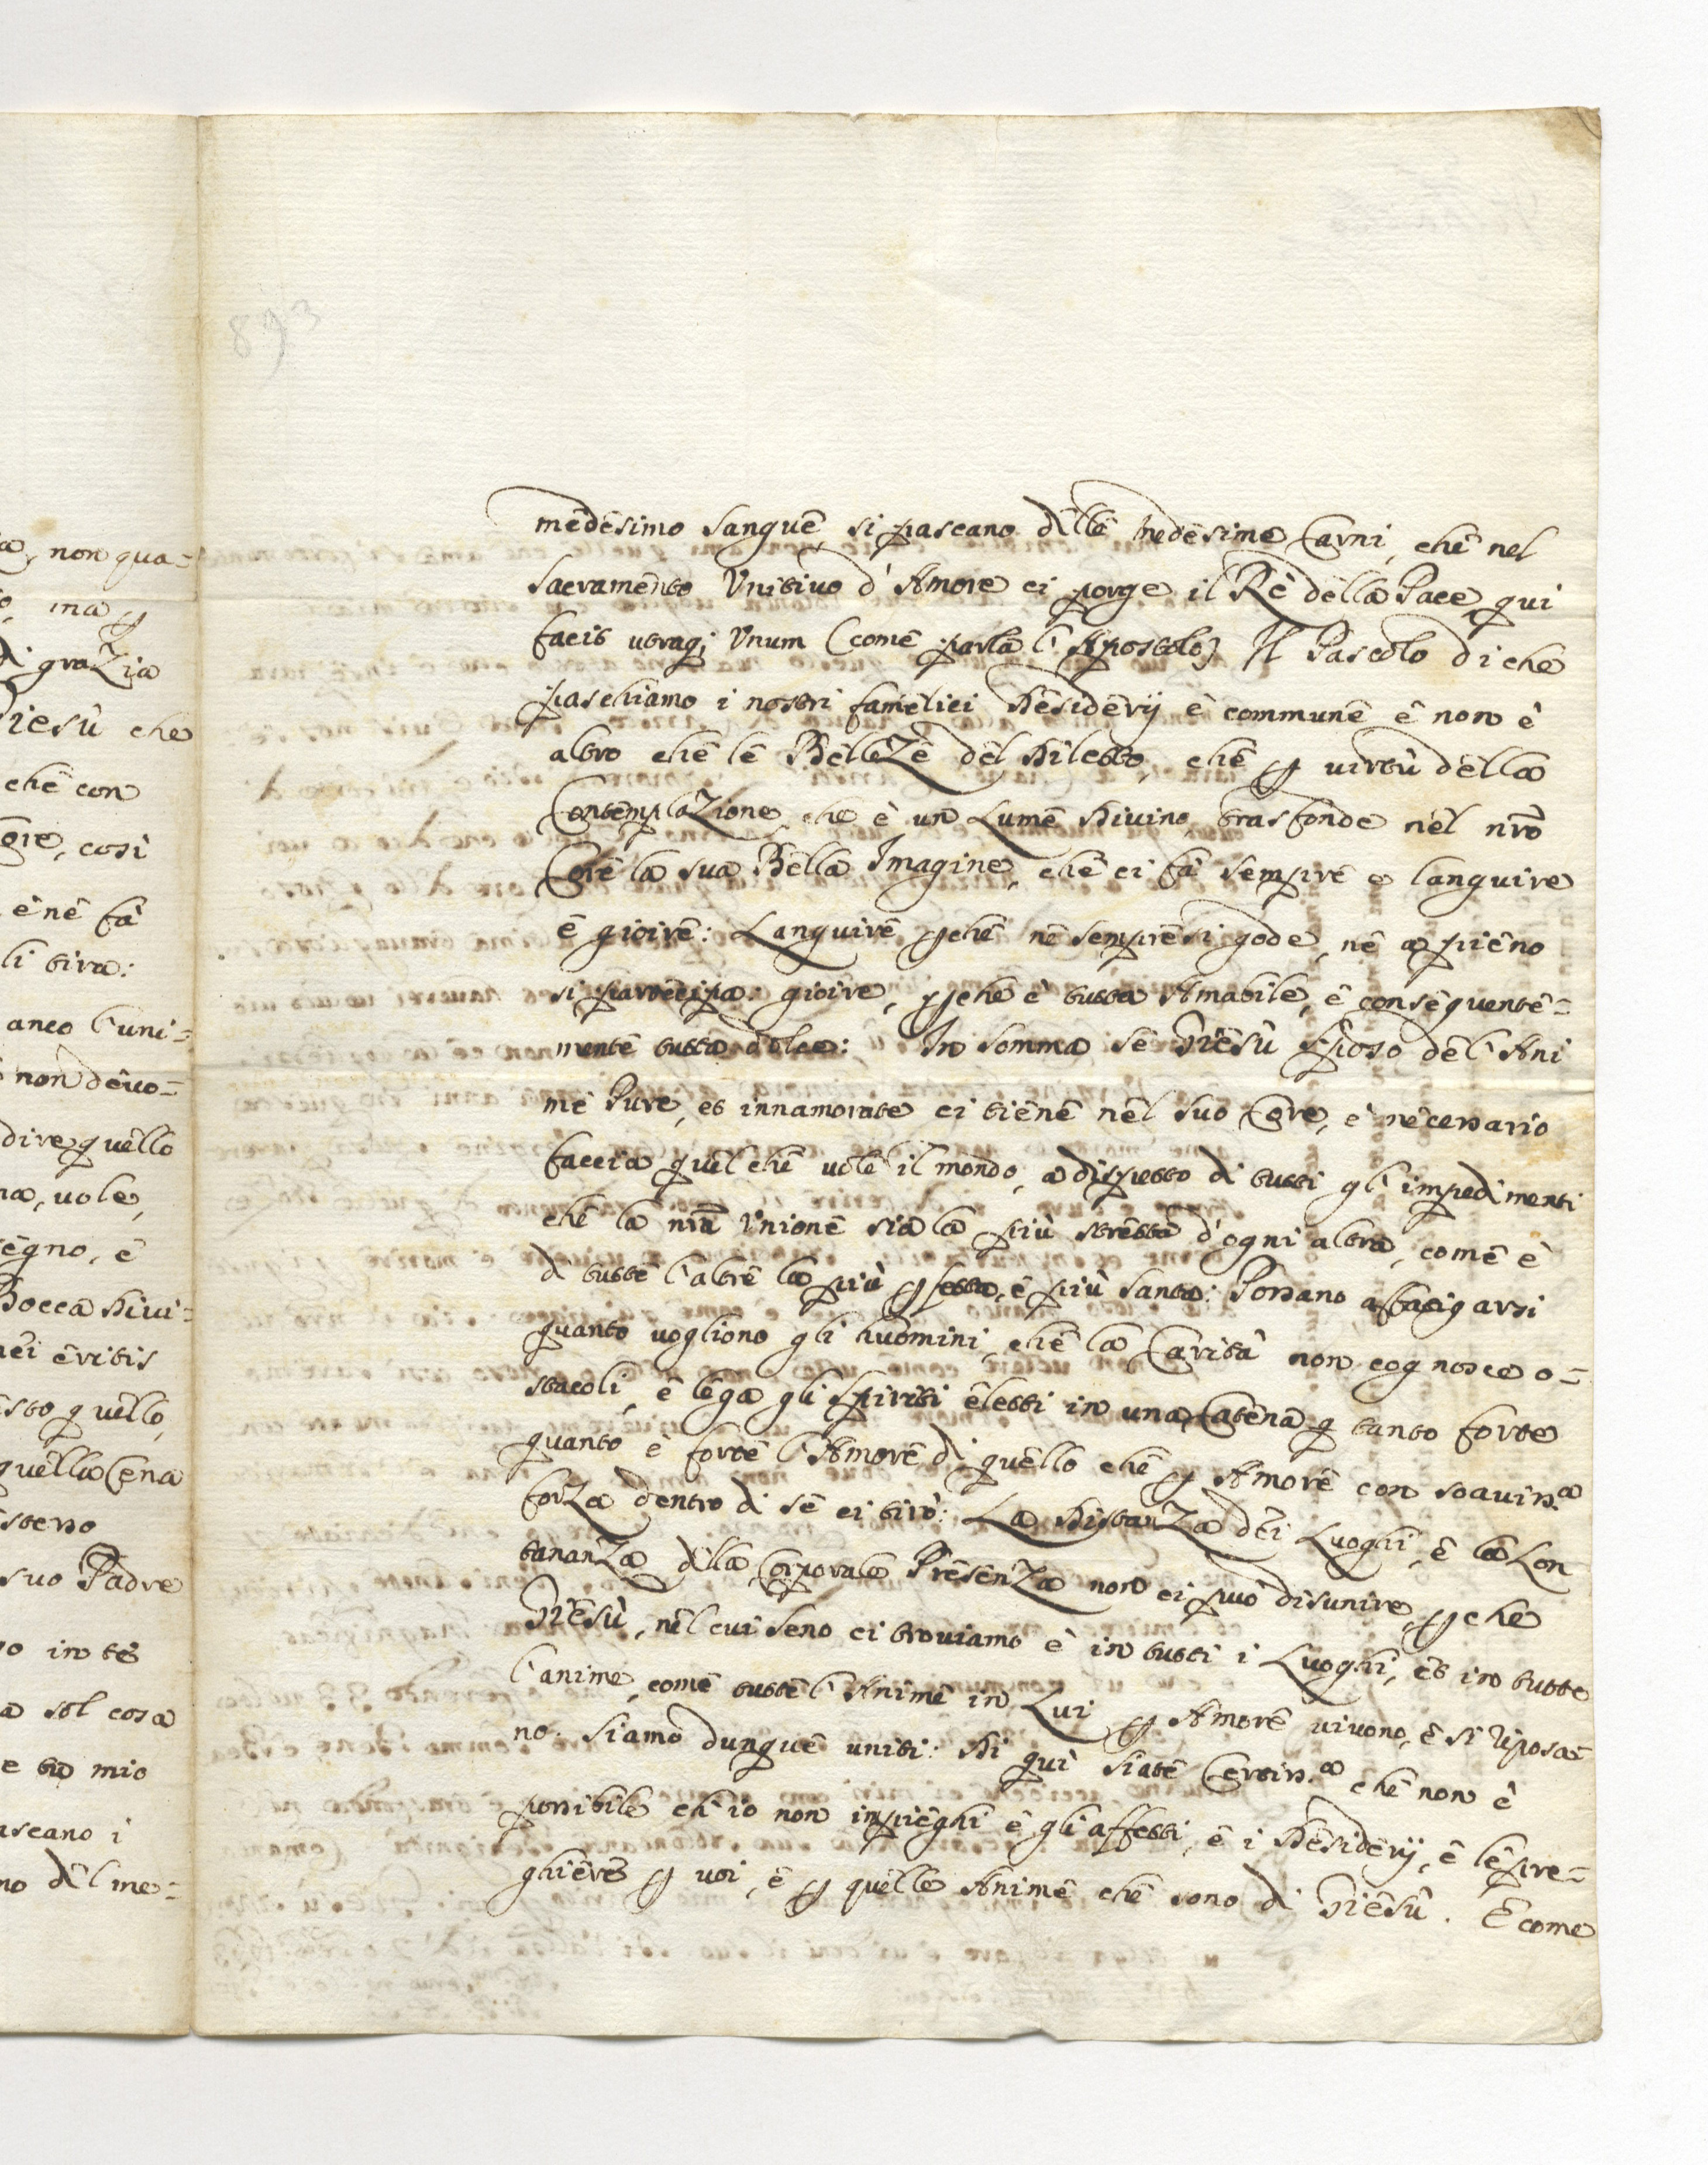 a, non qua=
o, ma p
di graZia
Giesù che
che con
ore, così
è nè fà
li tira:
anco l'uni=
non devo=
dire quello
na, vole,
egno, è
Bocca Divi=
mei eritis
sto quello,
quella Cena
stesso
suo Padre
o in te
a sol cosa
e tu mio
ascano i
no del me=
893
medesimo sangue, si pascano delle medesime Carni, che nel
sacramento Unitivo d'Amore ci porge il Rè della Pace, qui
facit utraq; Unum (come parla l'Apostolo) Il Pascolo di che
paschiamo i nostri famelici Desiderij è commune è non è
altro che le BelleZe del Diletto, che p virtù della
ContemplaZione, che è un Lume Divino, trasfonde nel nro
Core la sua Bella Imagine, che ci fà sempre e languire
e gioire: Languire pche nè sempre si gode, nè a pieno
si partecipa: gioire, pche è tutta Amabile, è conseguente=
mente tutta dolce: In somma se Giesù sposo del'Ani
me Pure, et innamorate ci tiene nel suo Core, è necessario
faccia quel che vole il mondo, a dispetto di tutti gl'impedimenti
che la nra Unione sia la più stretta d'ogni altra, come è
di tutte l'altre la più pfetta, è più santa: Possano affatigarsi
quanto vogliono gli huomini, che la Carità non cognosce o=
stacoli, è lega gli spiriti eletti in una Catena p tanto forte
quanto è forte l'Amore di quello che p Amore con soaviss.a
forZa dentro di sè ci tirò: La DistanZa dei Luoghi, è la Lon
tananZa della Corporale PresenZa non ci può disunire, pche
Giesù, nel cui seno ci troviamo è in tutti i Luoghi, et in tutte
l'anime, come tutte l'Anime in Lui p Amore vivono, è si riposa=
no. siamo dunque uniti: Di quì siate Certiss.a che non è
possibile ch'io non impieghi è gli affetti, è i Desiderij, è le pre=
ghiere p voi, è p quelle Anime che sono di Giesù. E come